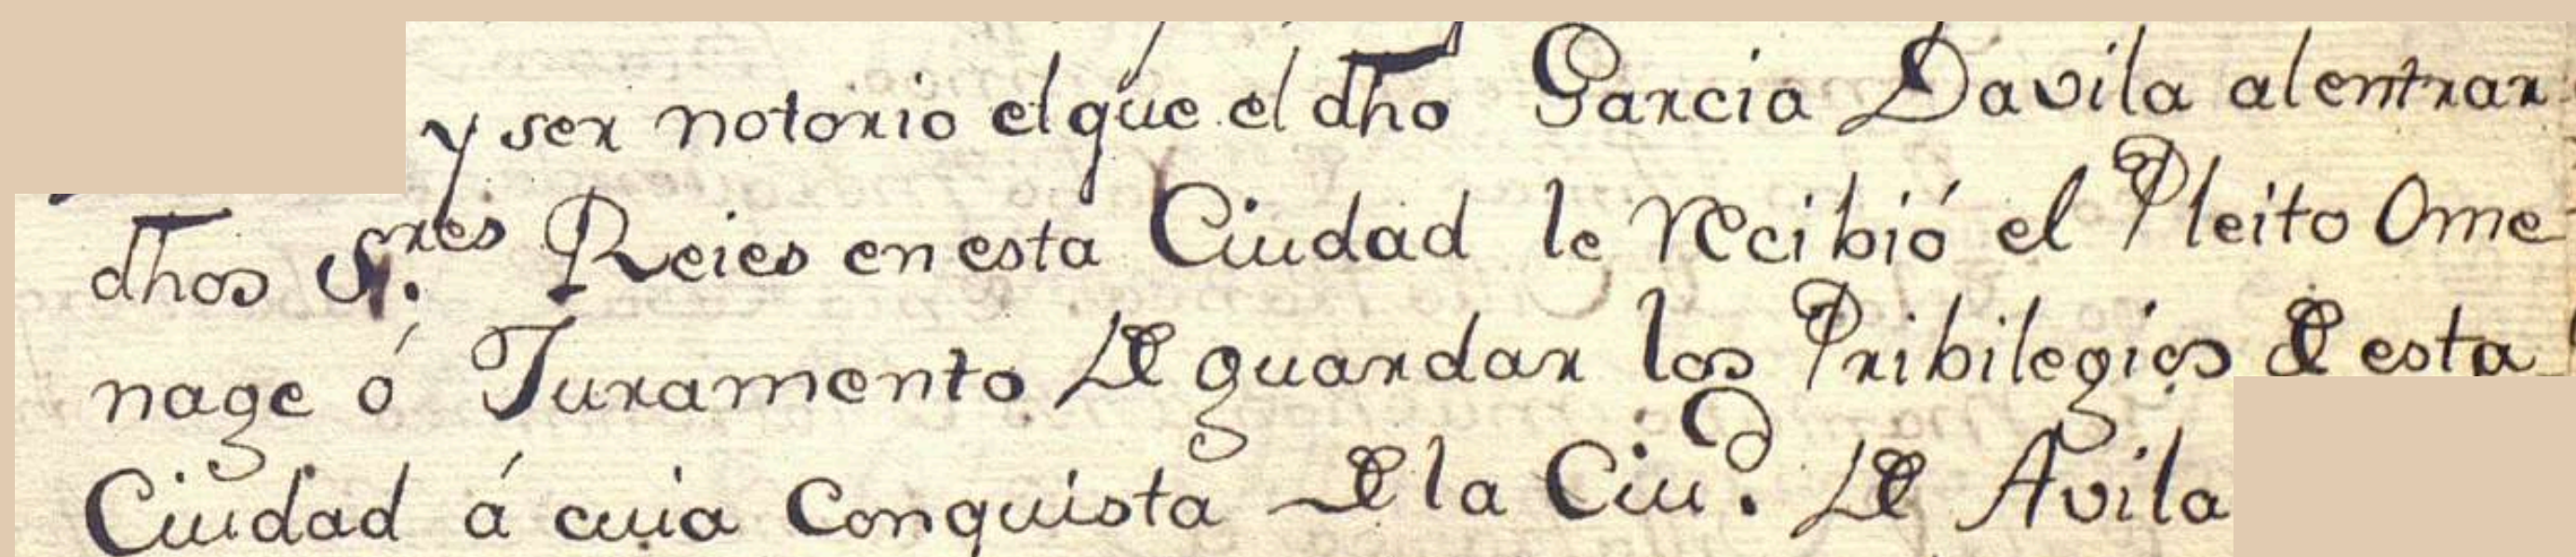 y ser notorio el que el dho Garcia Davila al entrar
dhos S.res Reies en esta Ciudad le Recibió el Pleito Ome
nage ó Juramento de guardar los Pribilegios de esta
Ciudad á cuia Conquista de la Ciu.d de Avila